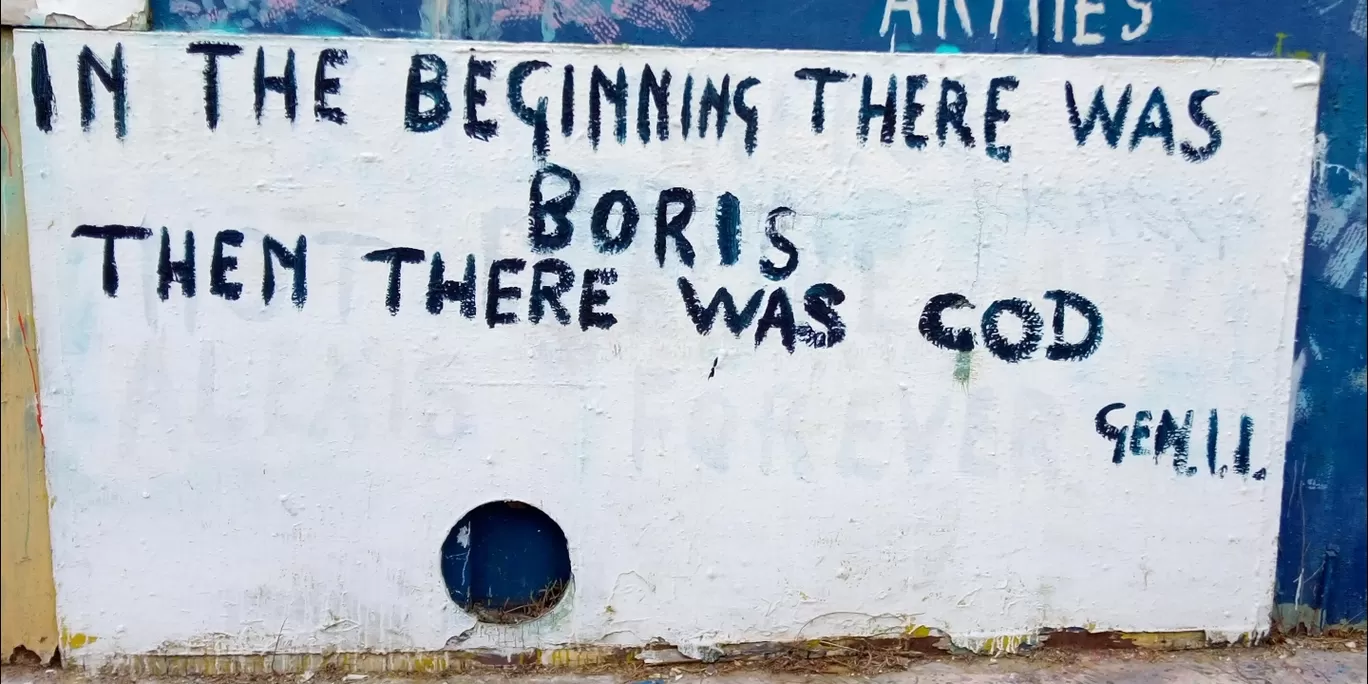 ARMIES
IN THE BEGINNING THERE WAS
BORIS
THEN THERE WAS GOD
FOREVER
GEN.I.I.